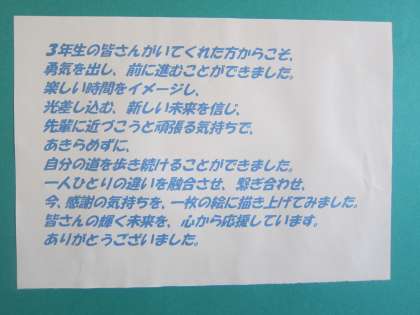 3年生の皆さんがいてくれた方からこそ、
勇気を出し、前に進むことができました。
楽しい時間をイメージし、
光差し込む、新しい未来を信じ、
先輩に近づこうと頑張る気持ちで、
あきらめずに、
自分の道を歩き続けることができました。
一人ひとりの違いを融合させ、繋ぎ合わせ、
今、感謝の気持ちを、一枚の絵に描き上げてみました。
皆さんの輝く未来を、心から応援しています。
ありがとうございました。